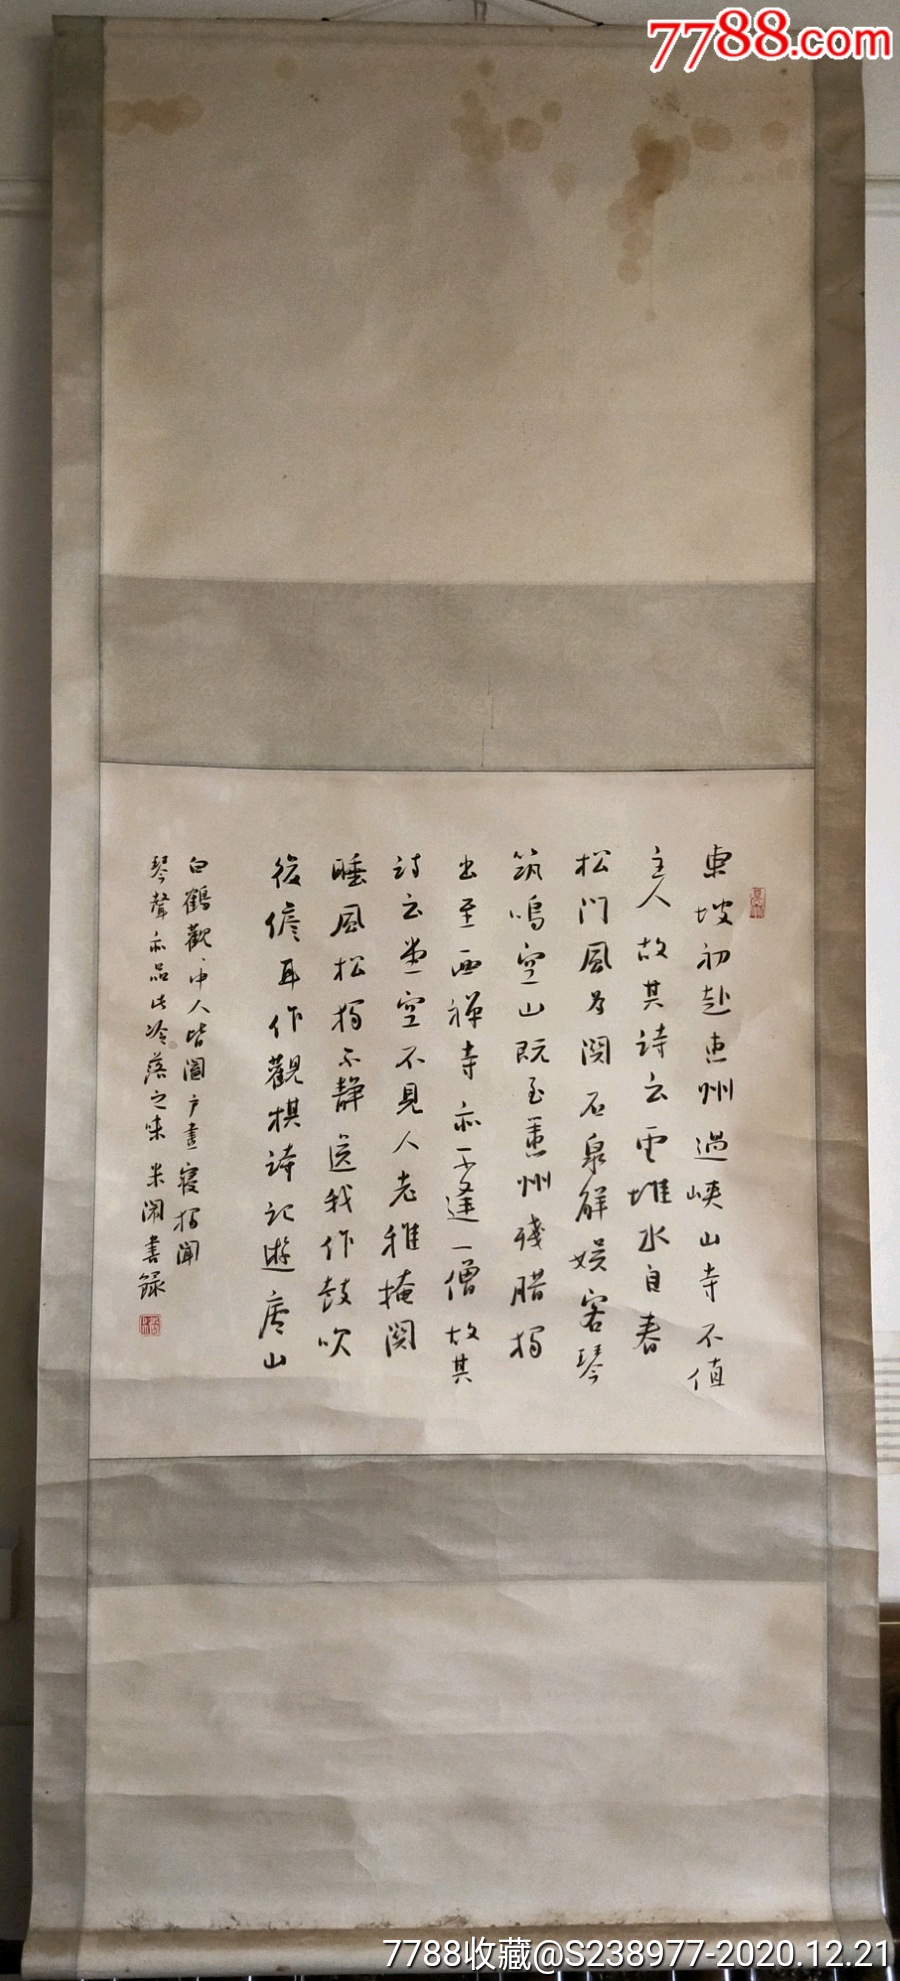 7788.com
東坡初赴惠州過峽山寺不值
主人故其詩云雲堆水自春
松門風為関石泉解娱客琴
筑鳴空山既至惠州殘臘獨
出至西禅寺亦不逢一僧故其
詩云堂空不見人老稚掩関
睡風松獨不静送我作鼓吹
後儋耳作觀棋詩記遊廬山
白鶴觀中人皆闔户晝寝独聞
琴聲亦品此冷落之味 米閑書録
7788收藏@S238977-2020.12.21